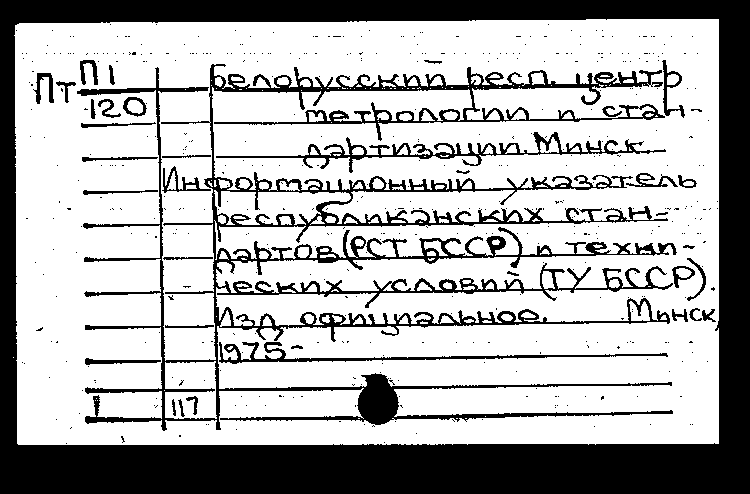 Пт П1
120
Белорусский респ. центр
метрологии и стан-
дартизации. Минск
Информационный указатель
республиканских стан=
дартов (РСТ БССР) и техни-
ческих условий (ТУ БССР).
Изд. официальное. Минск,
1975-
1 117